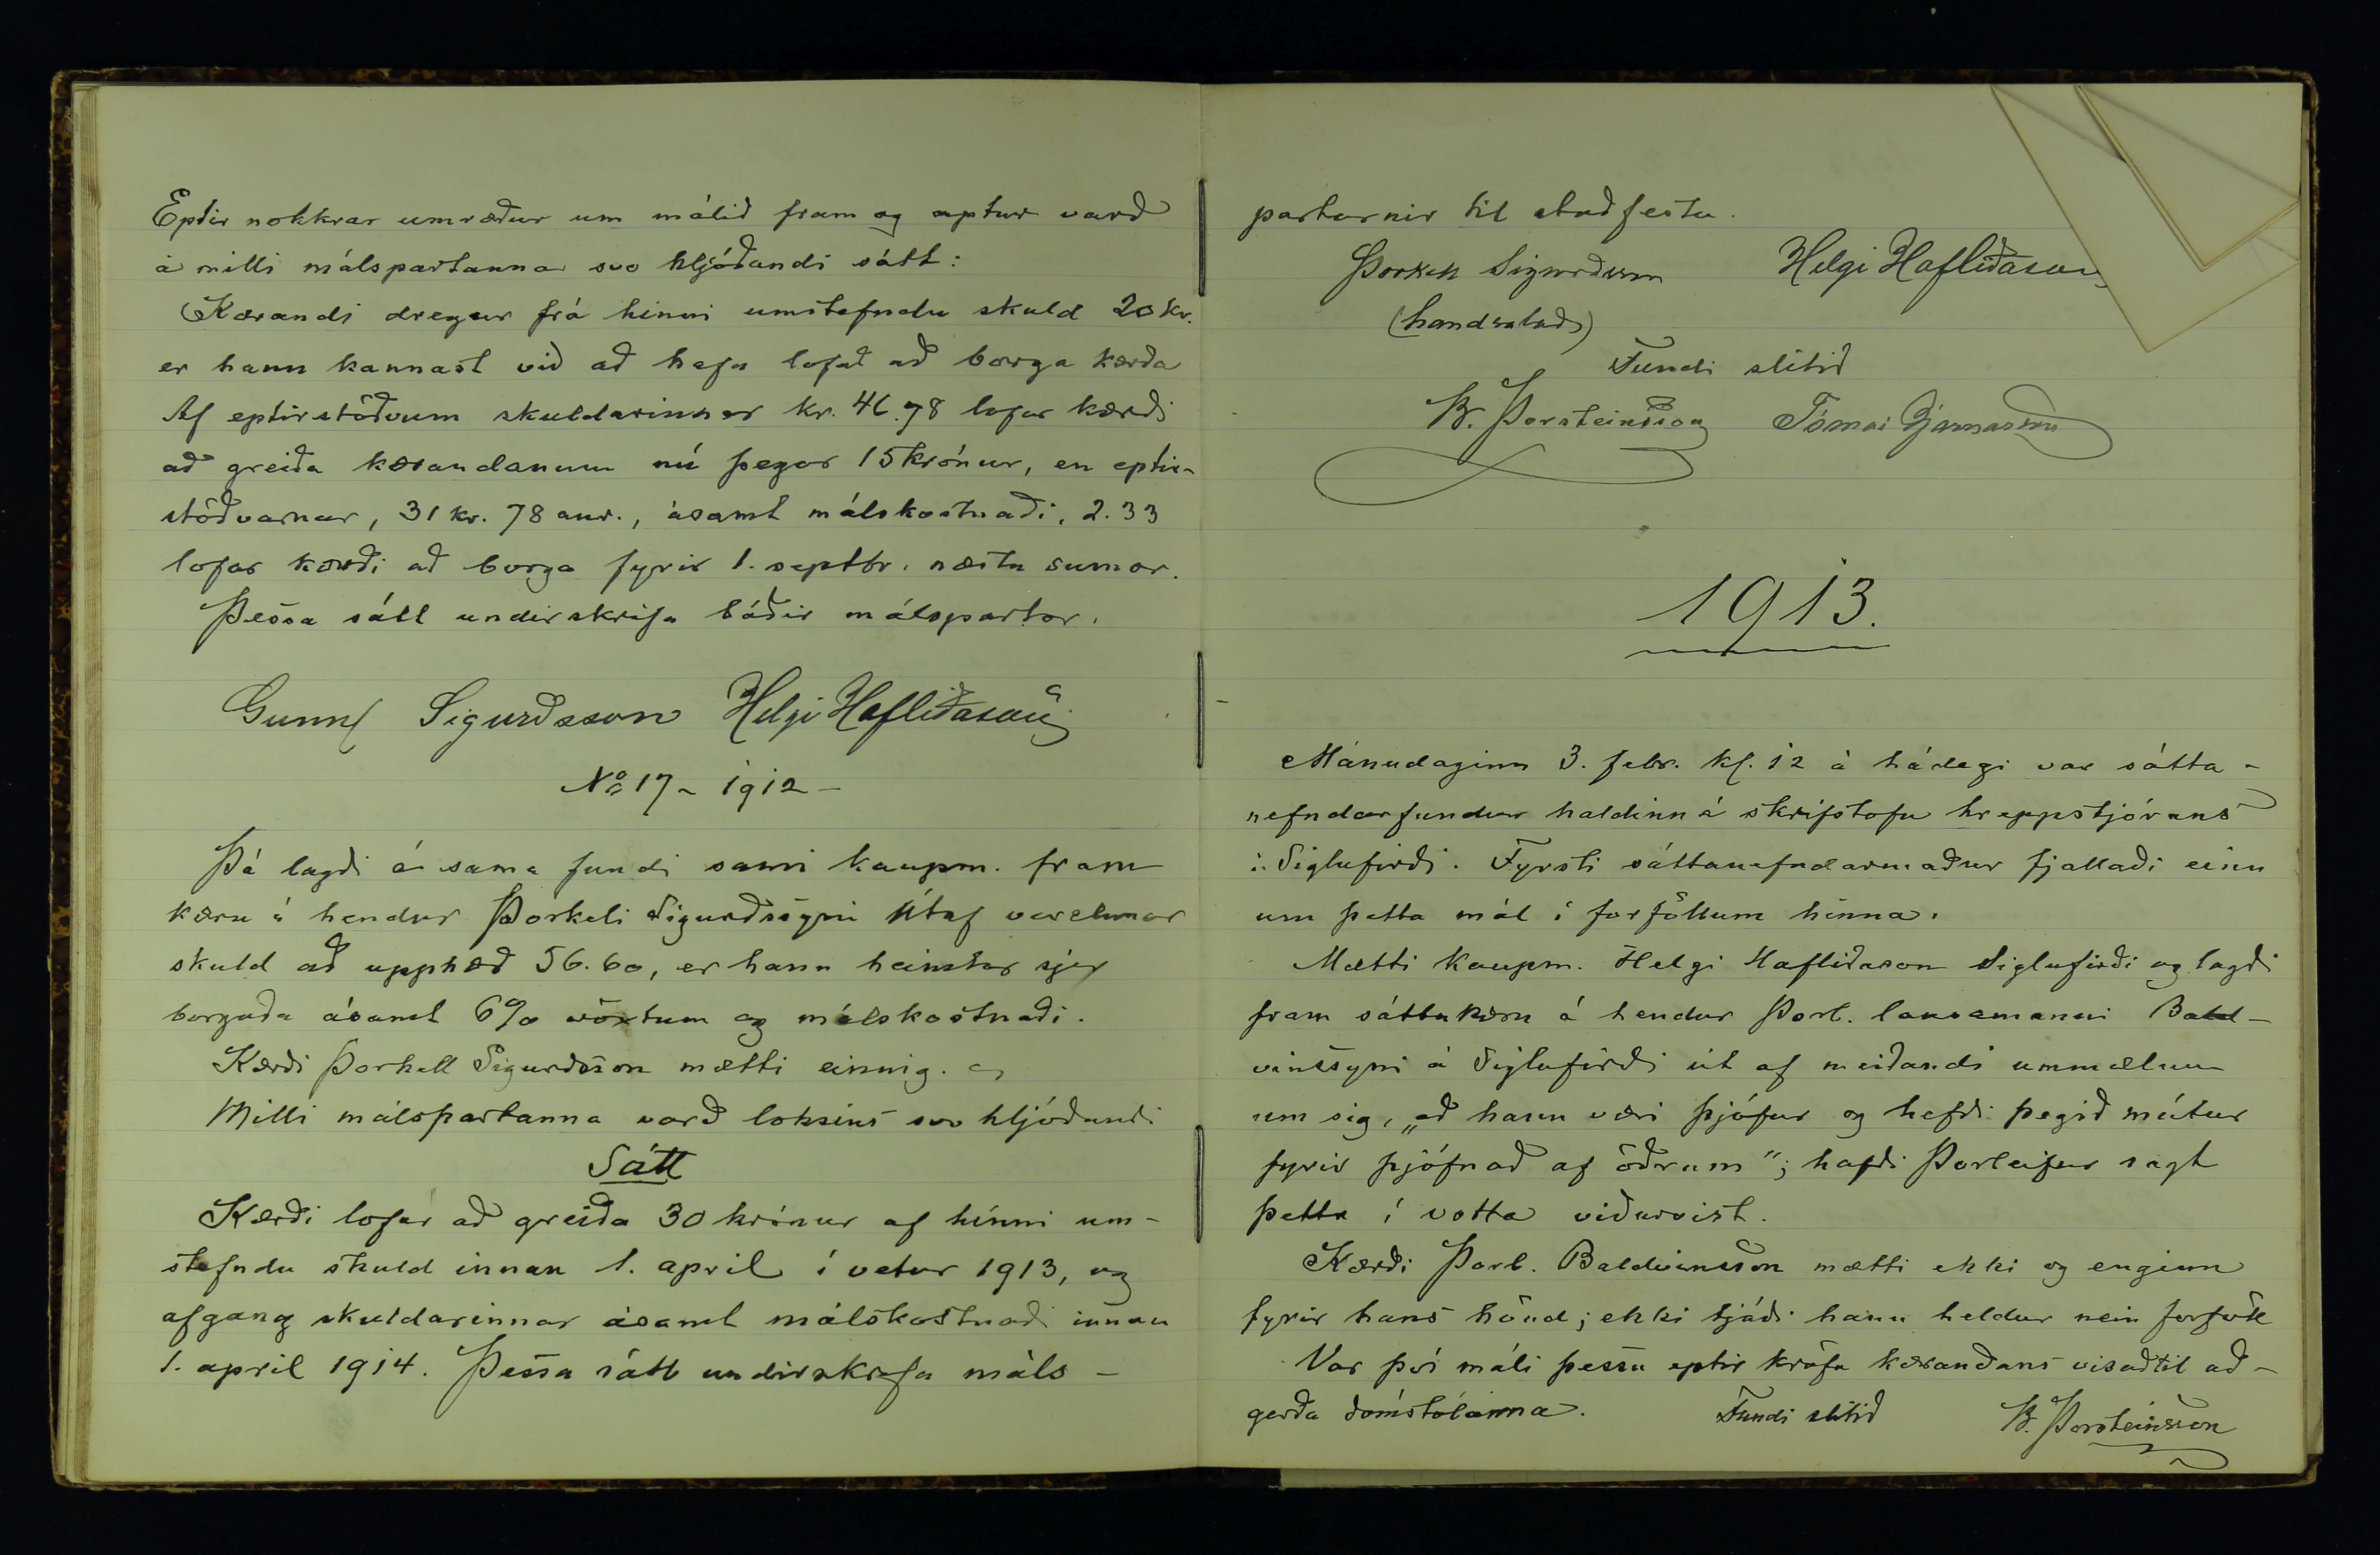 Eptir nokkrar umræður um málið fram og aptur varð
á milli málspartanna svo hljóðandi sátt:
Kærandi dregur frá hinni umstefndu skuld 20 kr.
er hann kannast við að hafa lofað að borga kærða
Af eptirstöðvum skuldarinnar kr. 46.78 lofar kærði
að greiða kærandanum nú þegar 15 krónur, en eptir-
stöðvarnar, 31 kr. 78 aur., ásamt málskostnaði, 2.33
lofar kærði að borga fyrir 1. septbr. næsta sumar.
Þessa sátt undirskrifa báðir málspartar.
Gunnl Sigurðsson Helgi Hafliðason
No 17 - 1912 -
Þá lagði á sama fundi sami kaupm. fram
kæru á hendur Þorkeli Sigurðssyni útaf verslunar
skuld að upphæð 56.60, er hann heimtar sjer
borgaða ásamt 6% vöxtum og málskostnaði.
Kærði Þorkell Sigurðsson mætti einnig.
Milli málspartanna varð loksins svo hljóðandi
Sátt
Kærði lofar að greiða 30 krónur af hinni um-
stefndu skuld innan 1. april í vetur 1913, og
afgang skuldarinnar ásamt málskostnaði innan
1. april 1914. Þessa sátt undirskrifa máls-
partarnir til staðfestu.
Þorkell Sigurðsson Helgi Hafliðason
(handsalað)
Fundi slitið
B. Þorsteinsson Tómas Bjarnason
1913.
Mánudaginn 3. febr. kl. 12 á hádegi var sátta-
nefndarfundur haldinn á skrifstofu hreppstjórans
í Siglufirði. Fyrsti sáttanefndarmaður fjallaði einn
um þetta mál í forföllum hinna.
Mætti kaupm. Helgi Hafliðason Siglufirði og lagði
fram sáttakæru á hendur Þorl. lausamanni Bald-
vinssyni á Siglufirði út af meiðandi ummælum
um sig, „að hann væri þjófur og hefði þegið mútur
fyrir þjófnað af öðrum"; hafði Þorleifur sagt
þetta í votta viðurvist.
Kærði Þorl. Baldvinsson mætti ekki og enginn
fyrir hans hönd; ekki tjáði hann heldur nein forföll
Var því máli þessu eptir kröfu kærandans vísað til að-
gerða dómstólanna. Fundi slitið B. Þorsteinsson